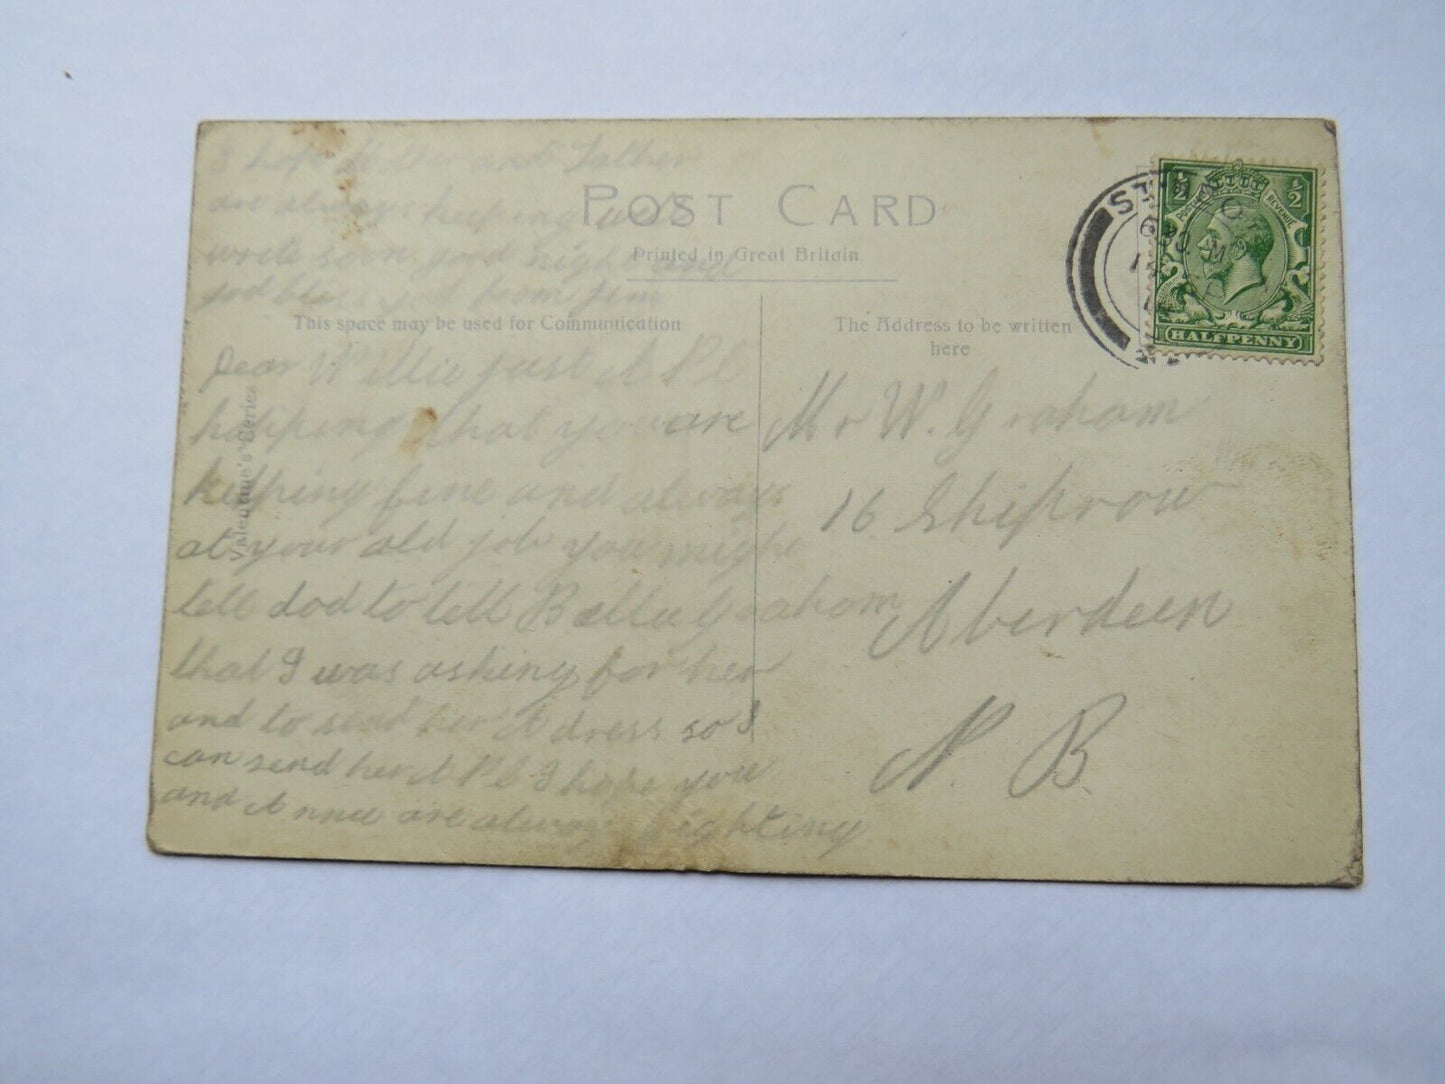 I hope Mother and Father
are always keeping well
write soon good night and
god bless you from Jim
POST CARD
Printed in Great Britain
This space may be used for Communication
The Address to be written
here
Valentine's Series
Dear Willie just A P.C
happing that you are
keepping fine and always
at your old job you might
tell dod to tell Bella Graham
that I was asking for her
and to send her Adress so I
can send her A P C I hope you
and Annie are always fighting
Mr W. Graham
16 Shiprow
Aberdeen
N. B.
½ ½
POSTAGE REVENUE
HALFPENNY
ST